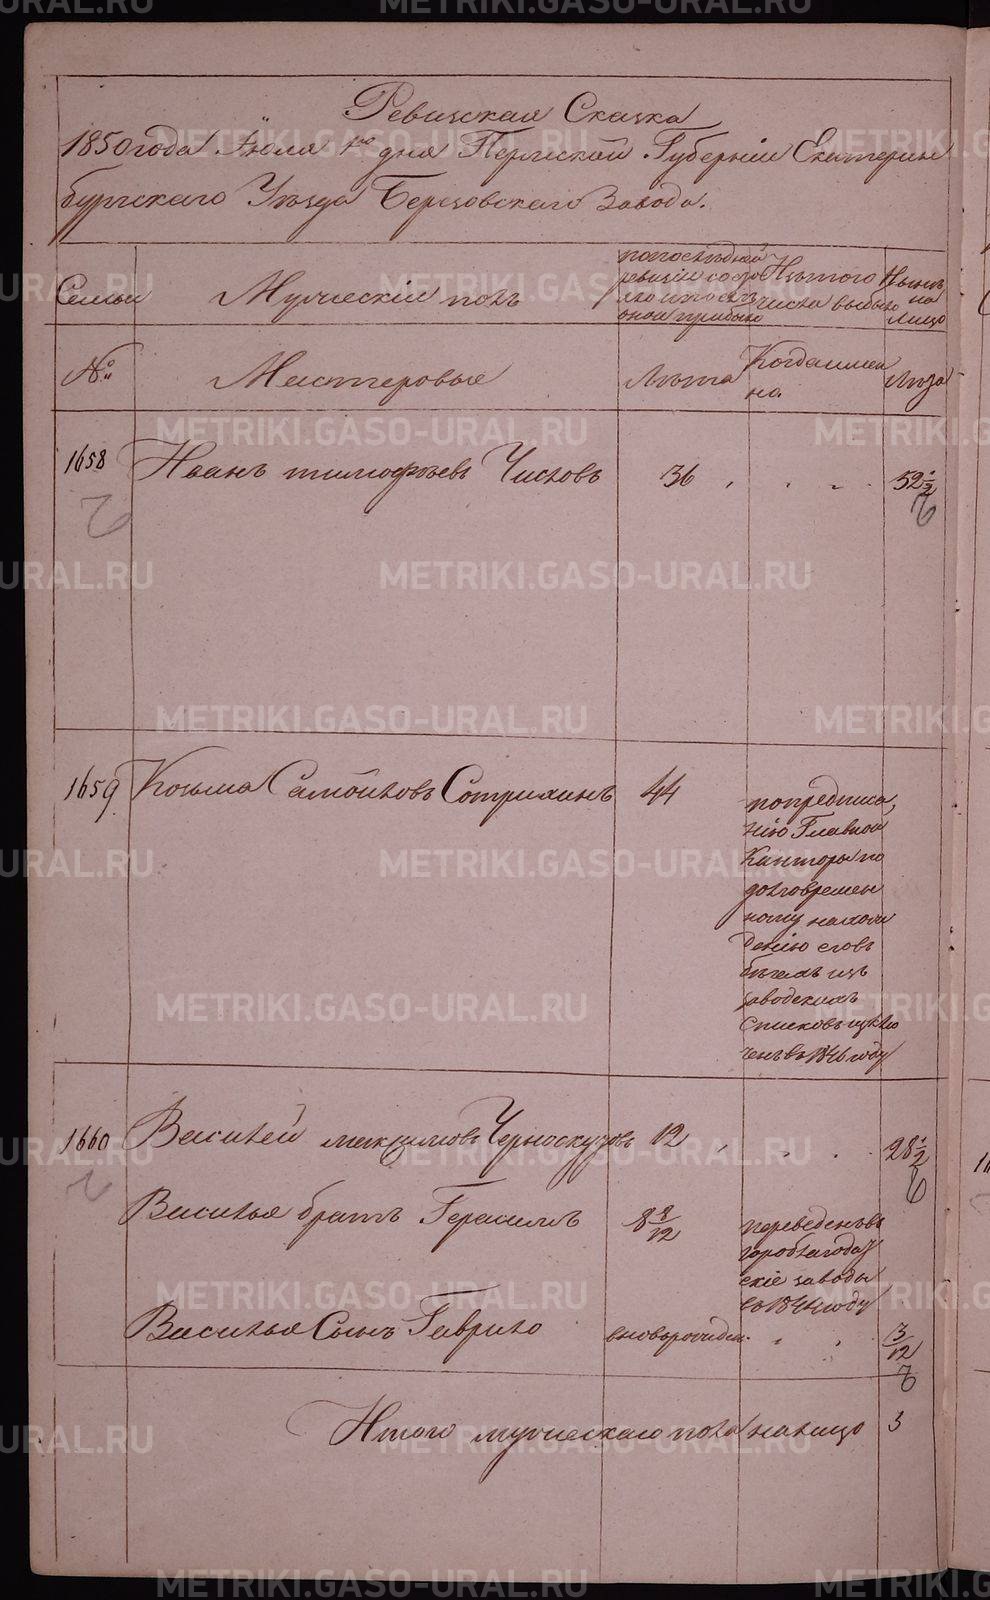 Ревизская Сказка
1850 года Июля 1го дня Пермской Губернiи Екатерин
бургскаго Уѣзда Березовскаго Завода.
Семьи
Мужескiй полъ
по последней ревизiи состояло и после оной прибыло
Изъ того числа выбыло
Нынѣ на лицо
№
Мастеровые
Лѣта
Когда имен
но.
Лѣта
1658 Иванъ тимофѣевъ Чистовъ 36 52 1/2
1659 Козьма Самойловъ Сотрихинъ 44
по предписа,
нiю Главной
Канторы по
долговремен
ному нахож
денiю его въ
бѣгахъ изъ
заводскихъ
Списковъ изклю
ченъ въ 1846 году
1660 Василей максимовъ Черноскутовъ 12 28 1/2
Василья братъ Герасимъ 8 8/12
переведенъ въ
гороблагодат
скiе заводы
въ 1844 году
Василья Сынъ Гаврило вновь рожден. 3/12
Итого мужескаго пола на лицо 3
METRIKI.GASO-URAL.RU